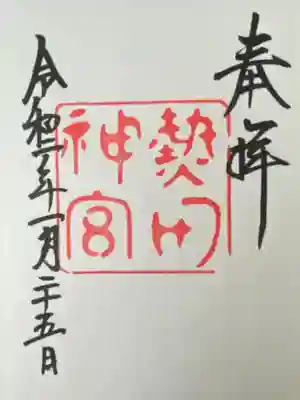 奉拝
熱田
神宮
令和二年一月二十五日